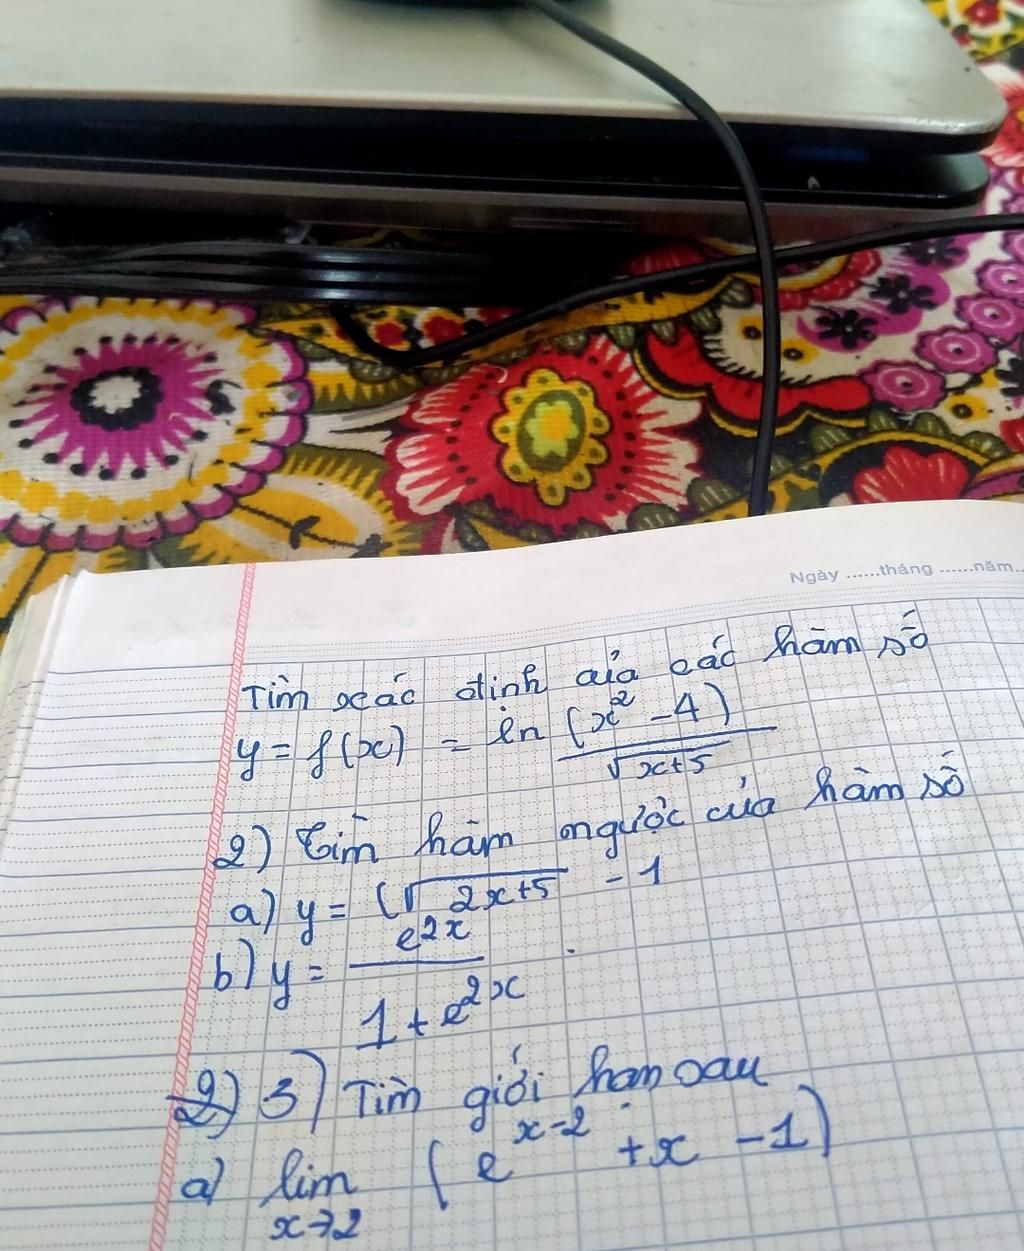 Ngày ......tháng ......năm...
Tìm xác định của các hàm số
y = f(x) = ln (x² - 4) / √x+5
2) Tìm hàm ngược của hàm số
a) y = (√2x+5 - 1
b) y = e^2x / 1 + e^2x
2) 3) Tìm giới hạn sau
a) lim x→2 (e^x-2 + x - 1)